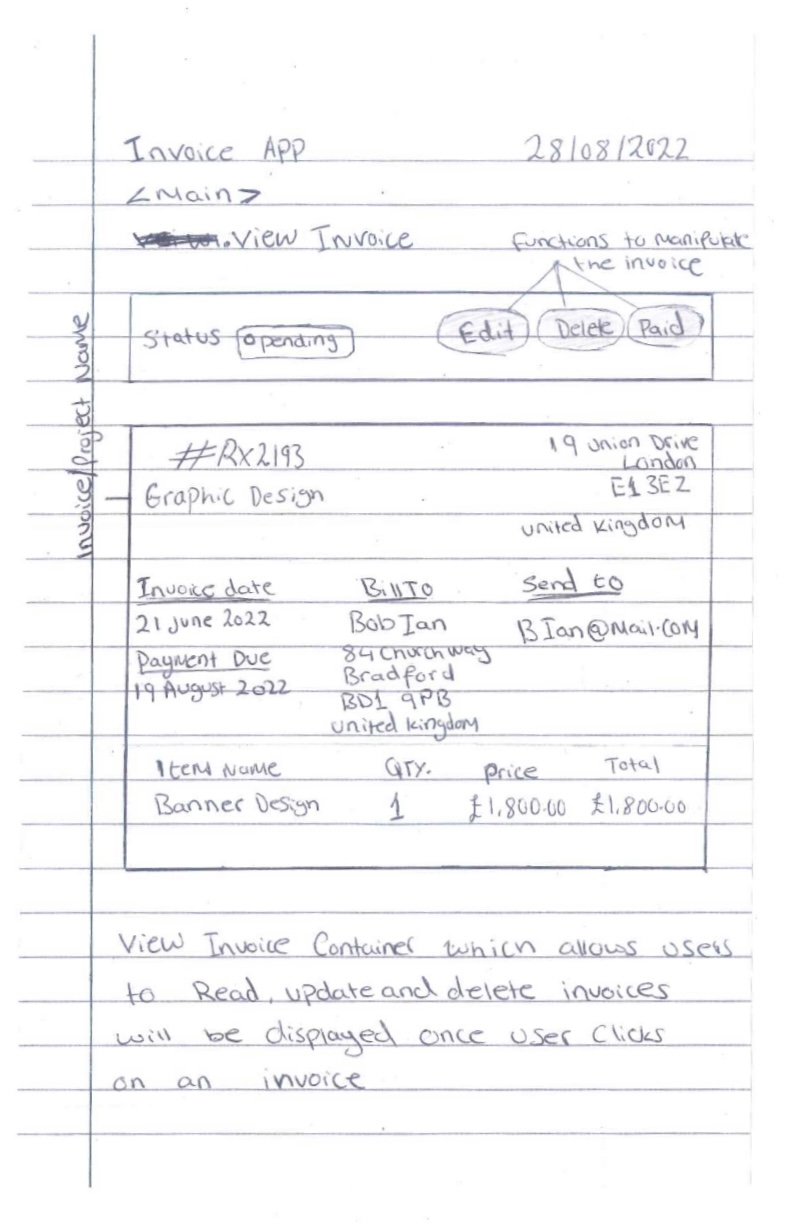 Invoice APP 28/08/2022
<Main>
View Invoice
Functions to Manipulate
the invoice
Status pending Edit Delete Paid
Invoice/Project Name
#RX2193
19 Union Drive
London
Graphic Design E1 3EZ
united Kingdom
Invoice date Bill To Send to
21 June 2022 Bob Ian BIan@Mail.com
Payment Due 84 Church way
19 August 2022 Bradford
BD1 9PB
united Kingdom
Item Name QTY. Price Total
Banner Design 1 £1,800.00 £1,800.00
View Invoice Container which allows users
to Read, update and delete invoices
will be displayed once user Clicks
on an invoice